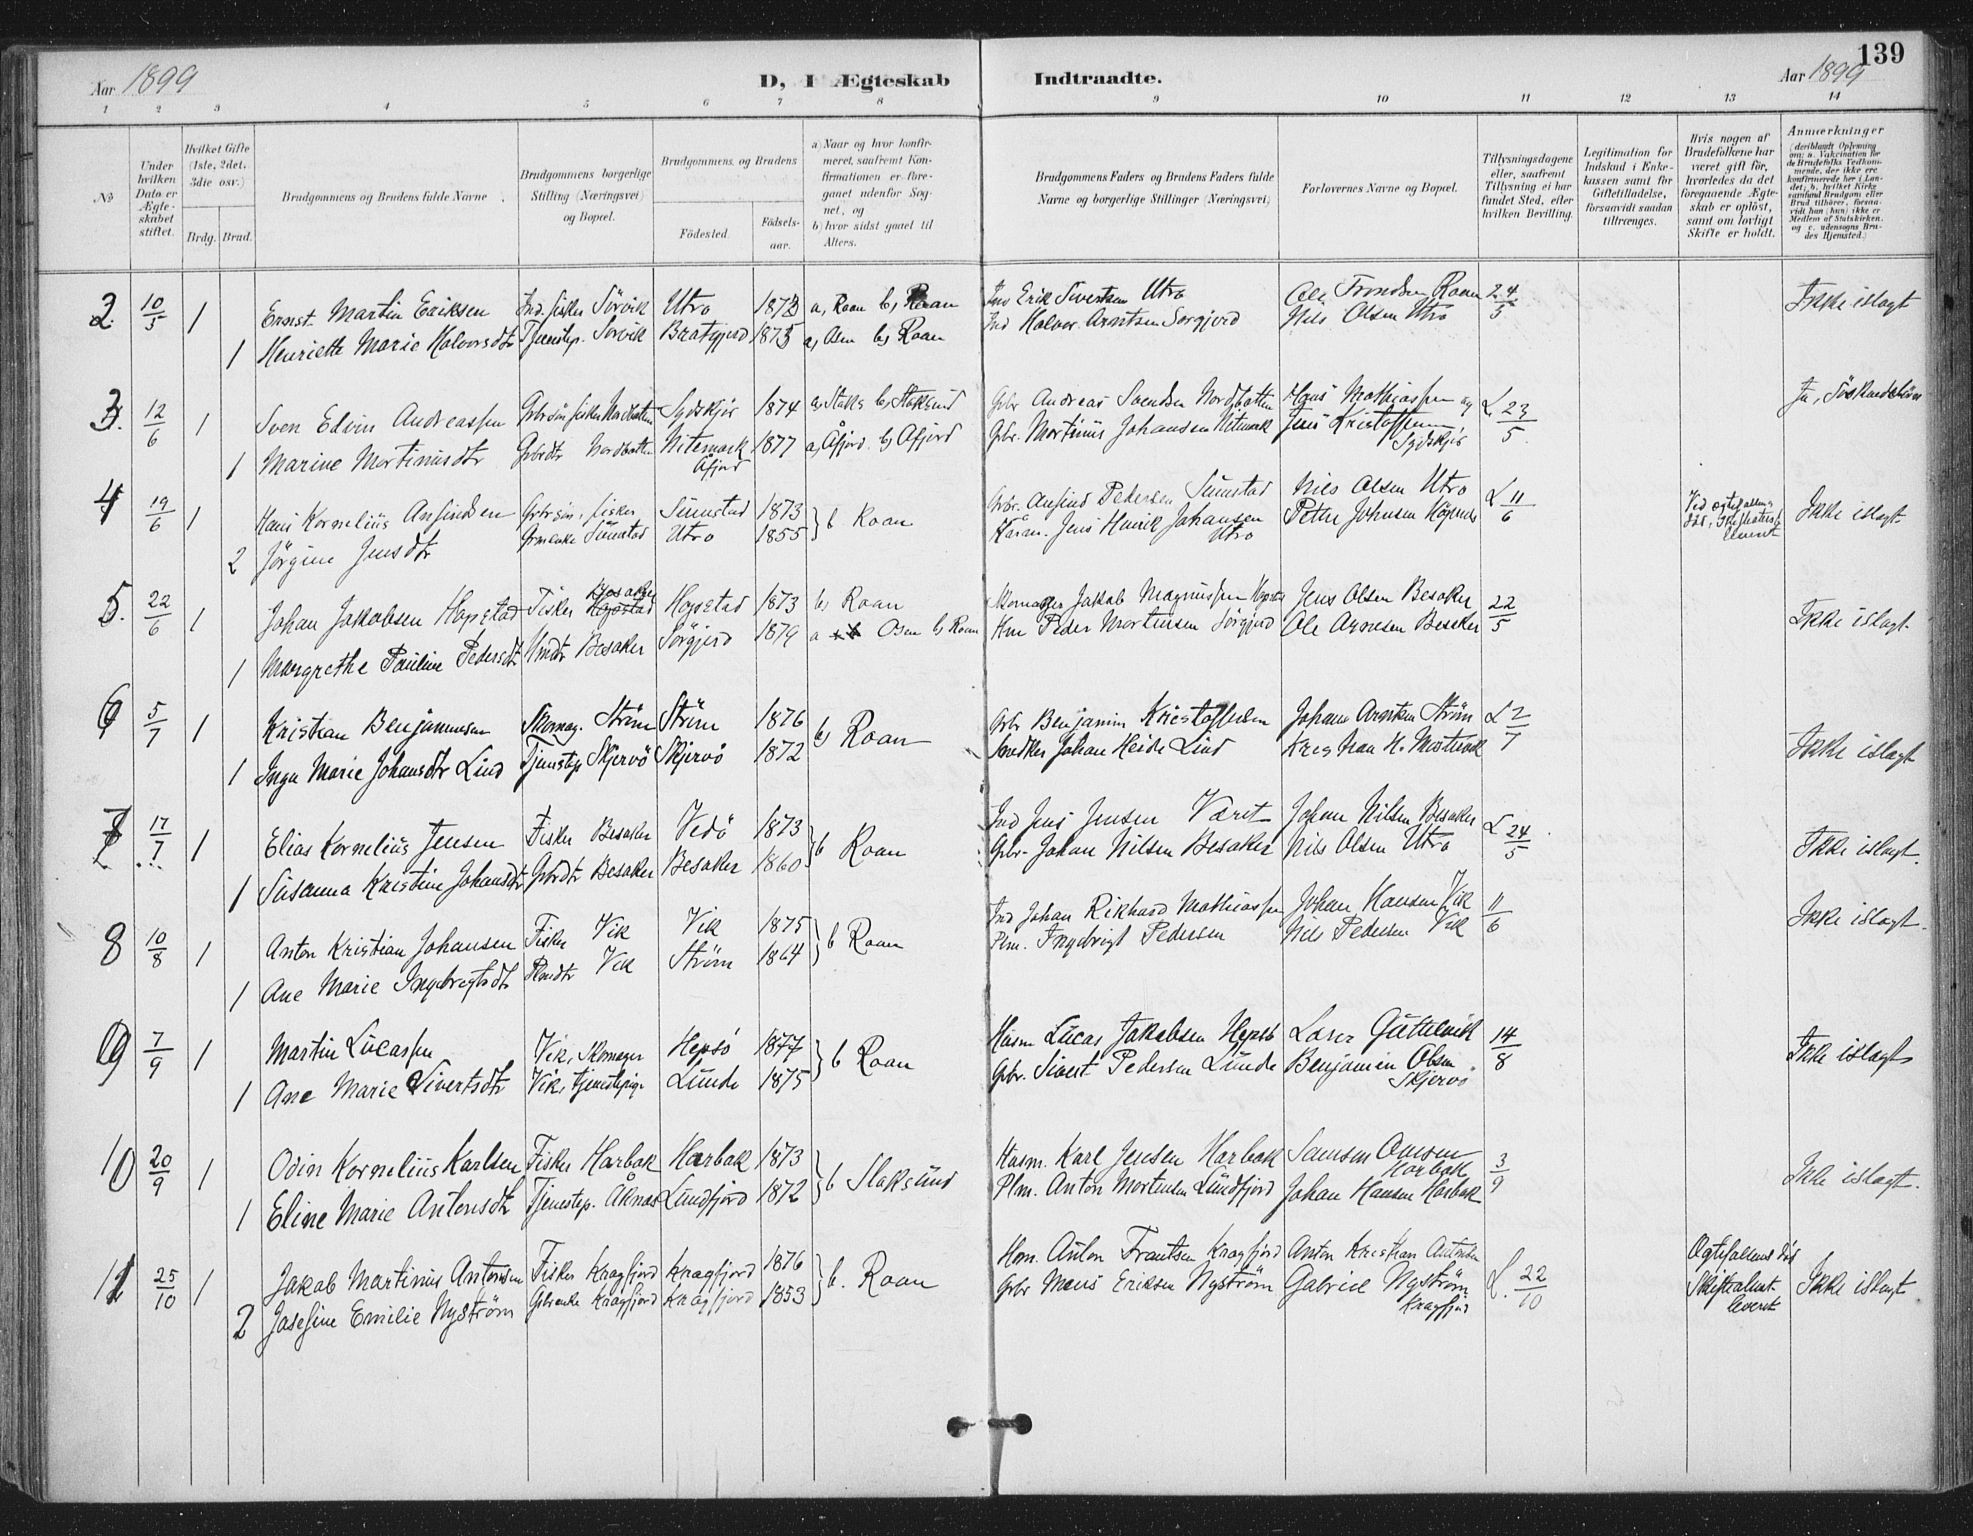 139
Aar 1899
D, I Ægteskab Indtraadte.
Aar 1899
1 2 3 4 5 6 7 8 9 10 11 12 13 14
No
Under hvilken Dato er Ægteskabet stiftet.
Hvilket Gifte (1ste, 2det, 3die osv.)
Brdg. Brud.
Brudgommens og Brudens fulde Navne
Brudgommens borgerlige Stilling (Næringsvei) og Bopæl.
Brudgommens og Brudens
Fødested.
Fødselsaar.
a) Naar og hvor konfirmeret, saafremt Konfirmationen er foregaaet udenfor Sognet, og
b) hvor sidst gaaet til Alters.
Brudgommens Faders og Brudens Faders fulde Navne og borgerlige Stillinger (Næringsvei)
Forlovernes Navne og Bopæl.
Tillysningsdagene eller, saafremt Tillysning ei har fundet Sted, efter hvilken Bevilling.
Legitimation for Indskud i Enkekassen samt for Giftetilladelse, forsaavidt saadan tiltrænges.
Hvis nogen af Brudefolkene har været gift før, hvorledes da det foregaaende Ægteskab er opløst, samt om lovligt Skifte er holdt.
Anmærkninger (deriblandt Oplysning om: a. Vakcination for de Brudefolks Vedkommende, der ikke ere konfirmerede her i Landet; b. hvilket Kirkesamfund Brudgom eller Brud tilhører, forsaavidt han (hun) ikke er Medlem af Statskirken. og c. udensogns Brudes Hjemsted.)
2. 10/5 1 Ernst Martin Eriksen Ind. fisker Sørvik Utro 1873 a, Roan b, Roan Ind Erik Sivertsen Utro Ole Trondsen Roan 24/5 Ikke islagt
1 Henriette Marie Halvorsdtr Tjenstep. Sørvik Bratgjerd 1875 a, Osen b, Roan Ind Halvor Arntsen Sørgjerd Nils Olsen Utro
3. 12/6 1 Sven Edvin Andreassen Grbrsøn fisker Nordbotten Sydskjør 1874 a, Stoks b, Stoksund Grbr Andreas Svendsen Nordbotten Hans Mathiassen og L 23/5 Ja, Søskendebørn
1 Marine Martinusdtr Grbrdtr Nordbotten Nitemark Åfjord 1877 a, Åfjord. b, Åfjord Grbr. Martinus Johansen Nitemark Jens Kristoffersen Sydskjør
4 19/6 1 Hans Kornelius Anfindsen Grbrsøn, fisker Sumstad 1873 b Roan Grbr. Anfind Pedersen Sumstad Nils Olsen Utro L 11/6 Ikke islagt
2 Jørgine Jensdtr Sumstad Utro 1855 Kåran. Jens Henrik Johansen Utro Peter Johnsen
5. 22/6 1 Johan Jakobsen Hopstad Fisker Besaker Hopstad 1873 b, Roan Skomager Jakob Magnussen Jens Olsen Besaker 22/5 Ikke islagt.
1 Margrethe Pauline Pedersdtr Besaker Sørgjerd 1879 a Osen b, Roan Hm Peder Martinsen Sørgjerd Ole Arnesen Besaker
6 5/7 1 Kristian Benjaminsen Skomag. Strøm Strøm 1876 b, Roan Grbr Benjamin Kristoffersen Johan Arntsen Strøm L 2/7 Ikke islagt
1 Inga Marie Johansdtr Lind Tjenstep Skjervø Skjervø 1872 Snedker Johan Heide Lind Kristian H.
7 17/7 1 Elias Kornelius Jensen Fisker Besaker Vedø 1873 b Roan Ind Jens Jensen Været Johan Nilsen Besaker L 24/5 Ikke islagt.
1 Susanna Kristine Johansdtr Grbrdtr Besaker Besaker 1860 Grbr. Johan Nilsen Besaker Nils Olsen Utro
8 10/8 1 Anton Kristian Johansen Fisker Vik Vik 1875 b Roan Ind Johan Rikhard Mathiassen Johan Hansen Vik 11/6 Ikke islagt.
1 Ane Marie Ingebrigtsdtr Plmdtr Vik Strøm 1864 Plm. Ingebrigt Pedersen Nils Pedersen Vik
9 7/9 1 Martin Lucassen Vik, Skomager Hepsø 1877 b Roan Husm Lucas Jakobsen Hepsø Guttelvik 14/8 Ikke islagt
1 Ane Marie Sivertsdtr Vik, tjenstepige Lunde 1875 Grbr. Sivert Pedersen Lunde Benjamin Olsen Skjervø
10 20/9 1 Odin Kornelius Karlsen Fisker Harbak Harbak 1873 b Stoksund Husm. Karl Jensen Harbak Samson Harbak 3/9 Ikke islagt.
1 Eline Marie Antonsdtr Tjenstep. Åknes Lundfjord 1872 Plm. Anton Mortensen Lundfjord Johan Hansen Harbak
11 25/10 1 Jakob Martinus Antonsen Fisker Kragfjord Kragfjord 1876 b. Roan Hm. Anton Frantsen Kragfjord Anton Kristian Antonsen L. 22/10 Ægtefællens død Skifteattest leveret Ikke islagt
2 Josefine Emilie Nystrøm Gbrenke Kragfjord Kragfjord 1853 Grbr Mons Eriksen Nystrøm Gabriel Nystrøm Kragfjord